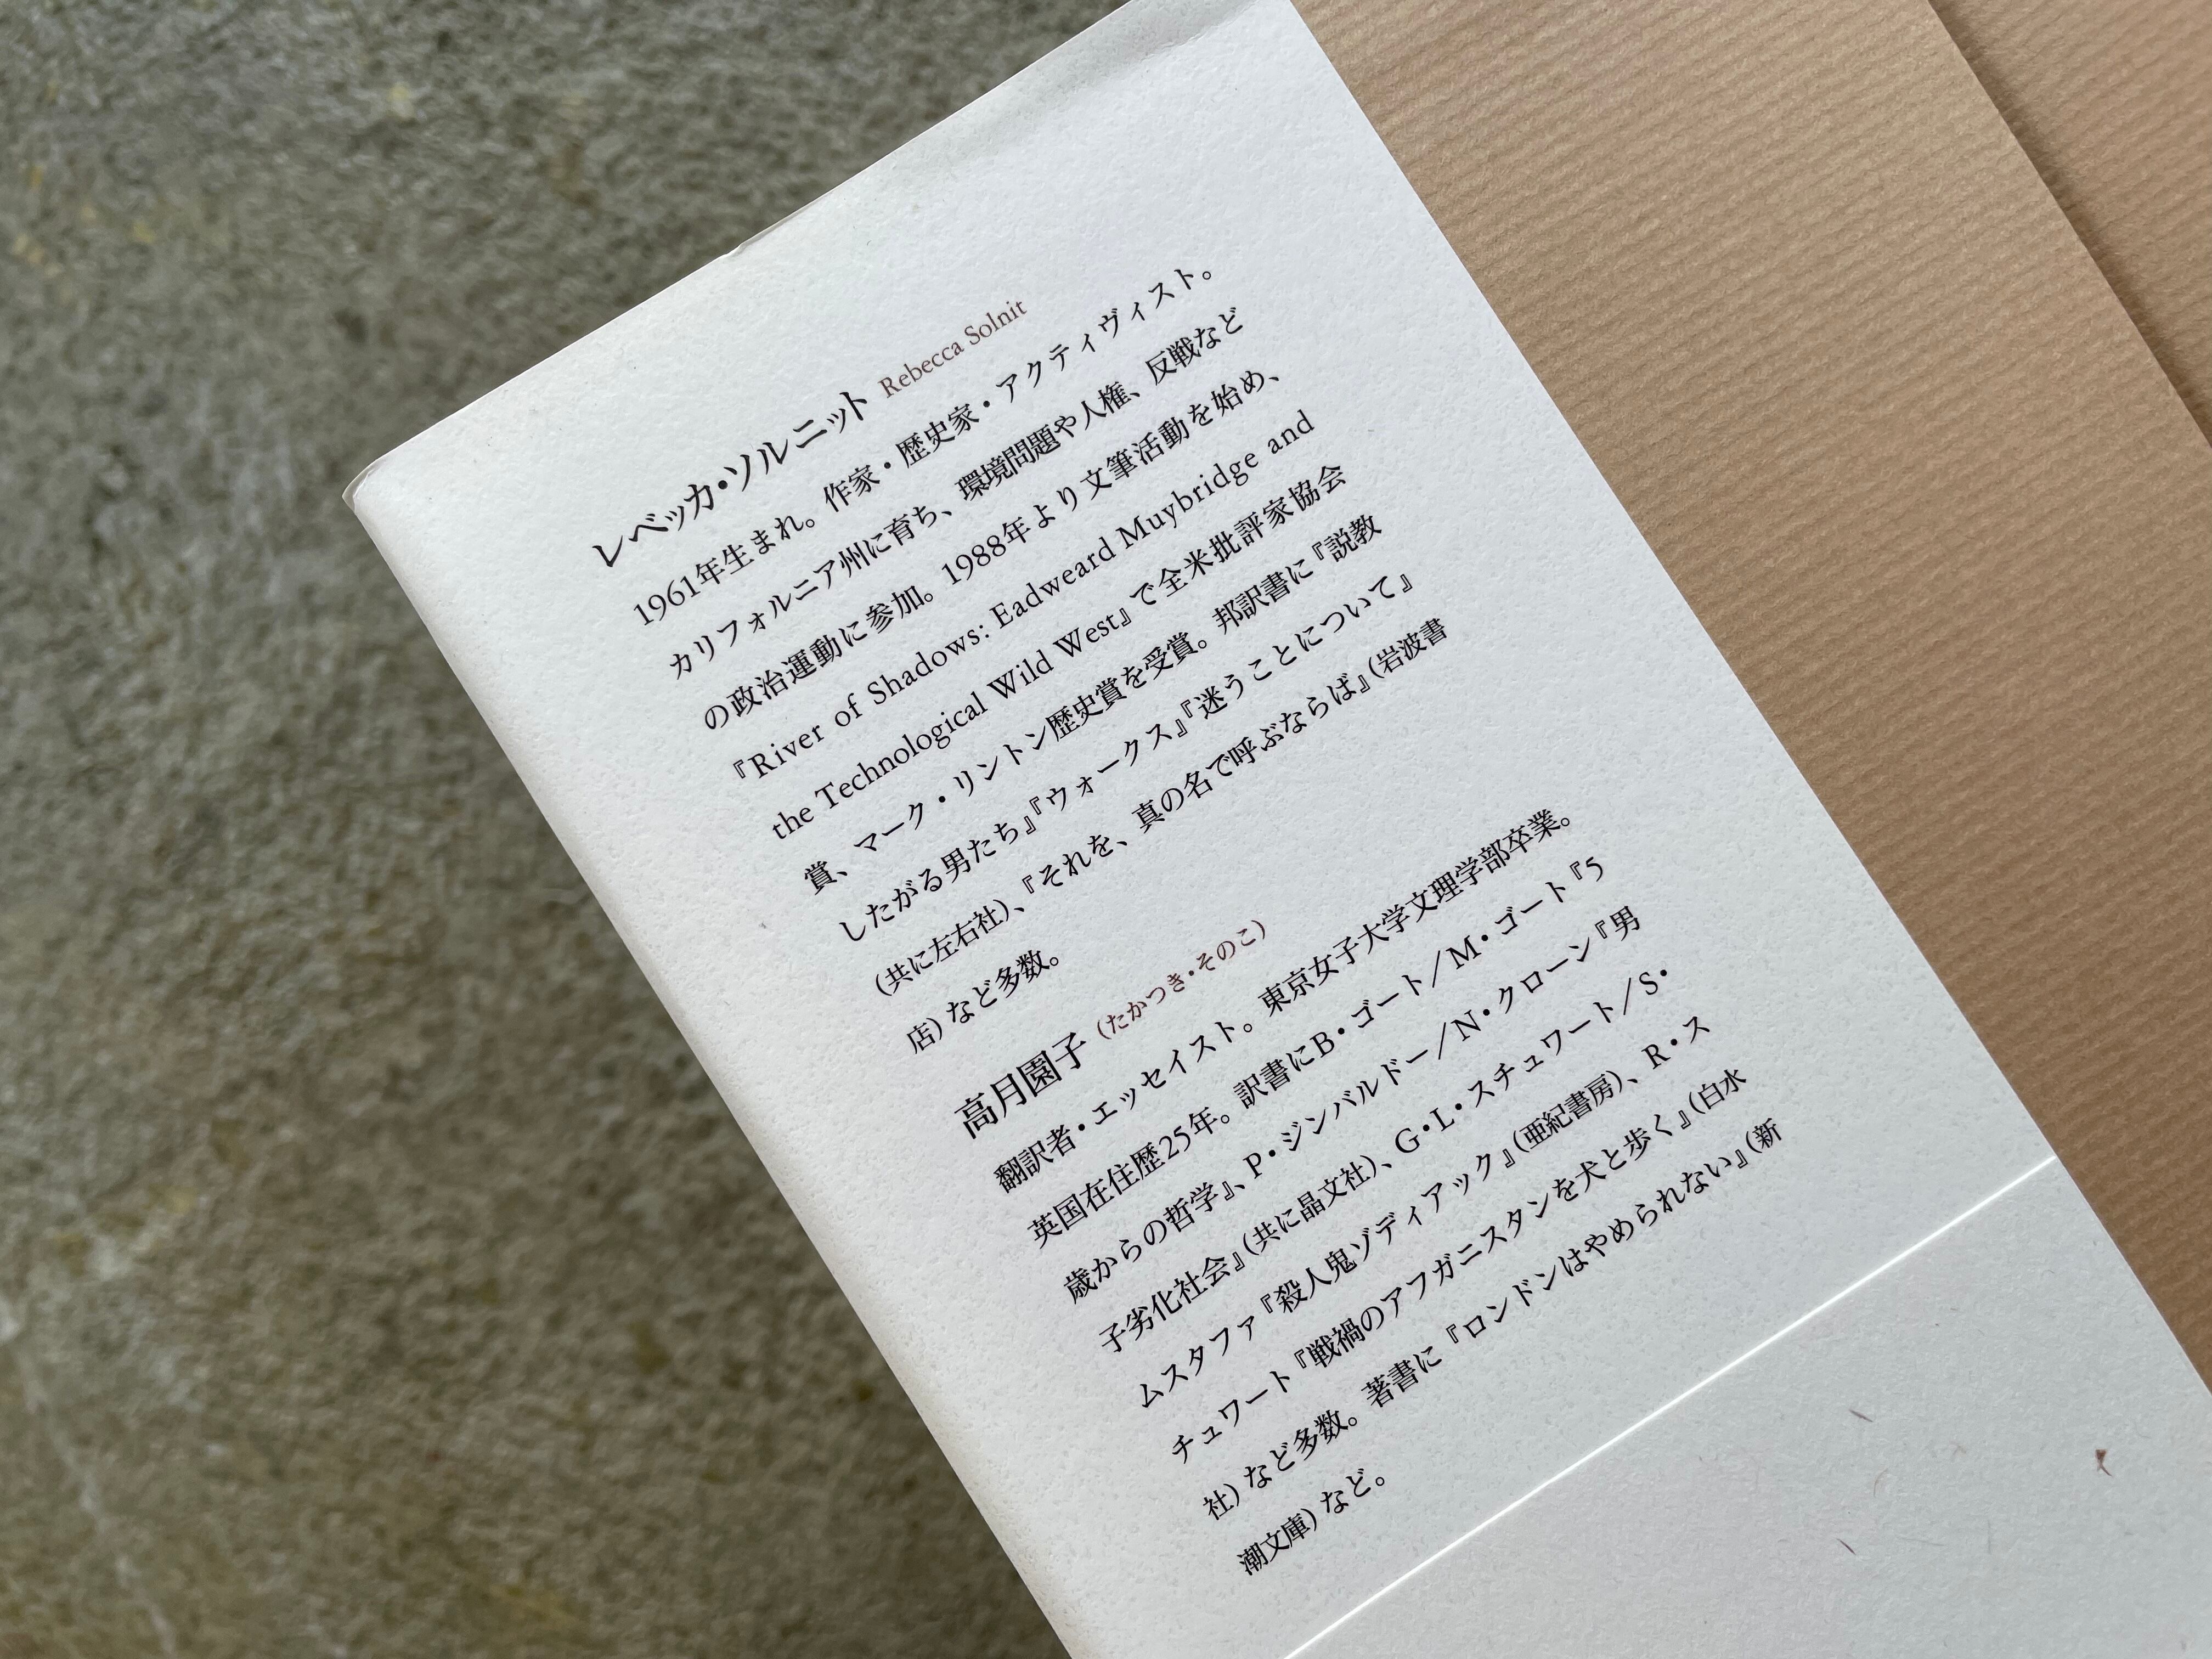 レベッカ・ソルニット Rebecca Solnit
1961年生まれ。作家・歴史家・アクティヴィスト。
カリフォルニア州に育ち、環境問題や人権、反戦など
の政治運動に参加。1988年より文筆活動を始め、
『River of Shadows: Eadweard Muybridge and
the Technological Wild West』で全米批評家協会
賞、マーク・リントン歴史賞を受賞。邦訳書に『説教
したがる男たち』『ウォークス』『迷うことについて』
（共に左右社）、『それを、真の名で呼ぶならば』（岩波書
店）など多数。
高月園子（たかつき・そのこ）
翻訳者・エッセイスト。東京女子大学文理学部卒業。
英国在住歴25年。訳書にB・ゴート／M・ゴート『5
歳からの哲学』、P・ジンバルドー／N・クローン『男
子劣化社会』（共に晶文社）、G・L・スチュワート／S・
ムスタファ『殺人鬼ゾディアック』（亜紀書房）、R・ス
チュワート『戦禍のアフガニスタンを犬と歩く』（白水
社）など多数。著書に『ロンドンはやめられない』（新
潮文庫）など。